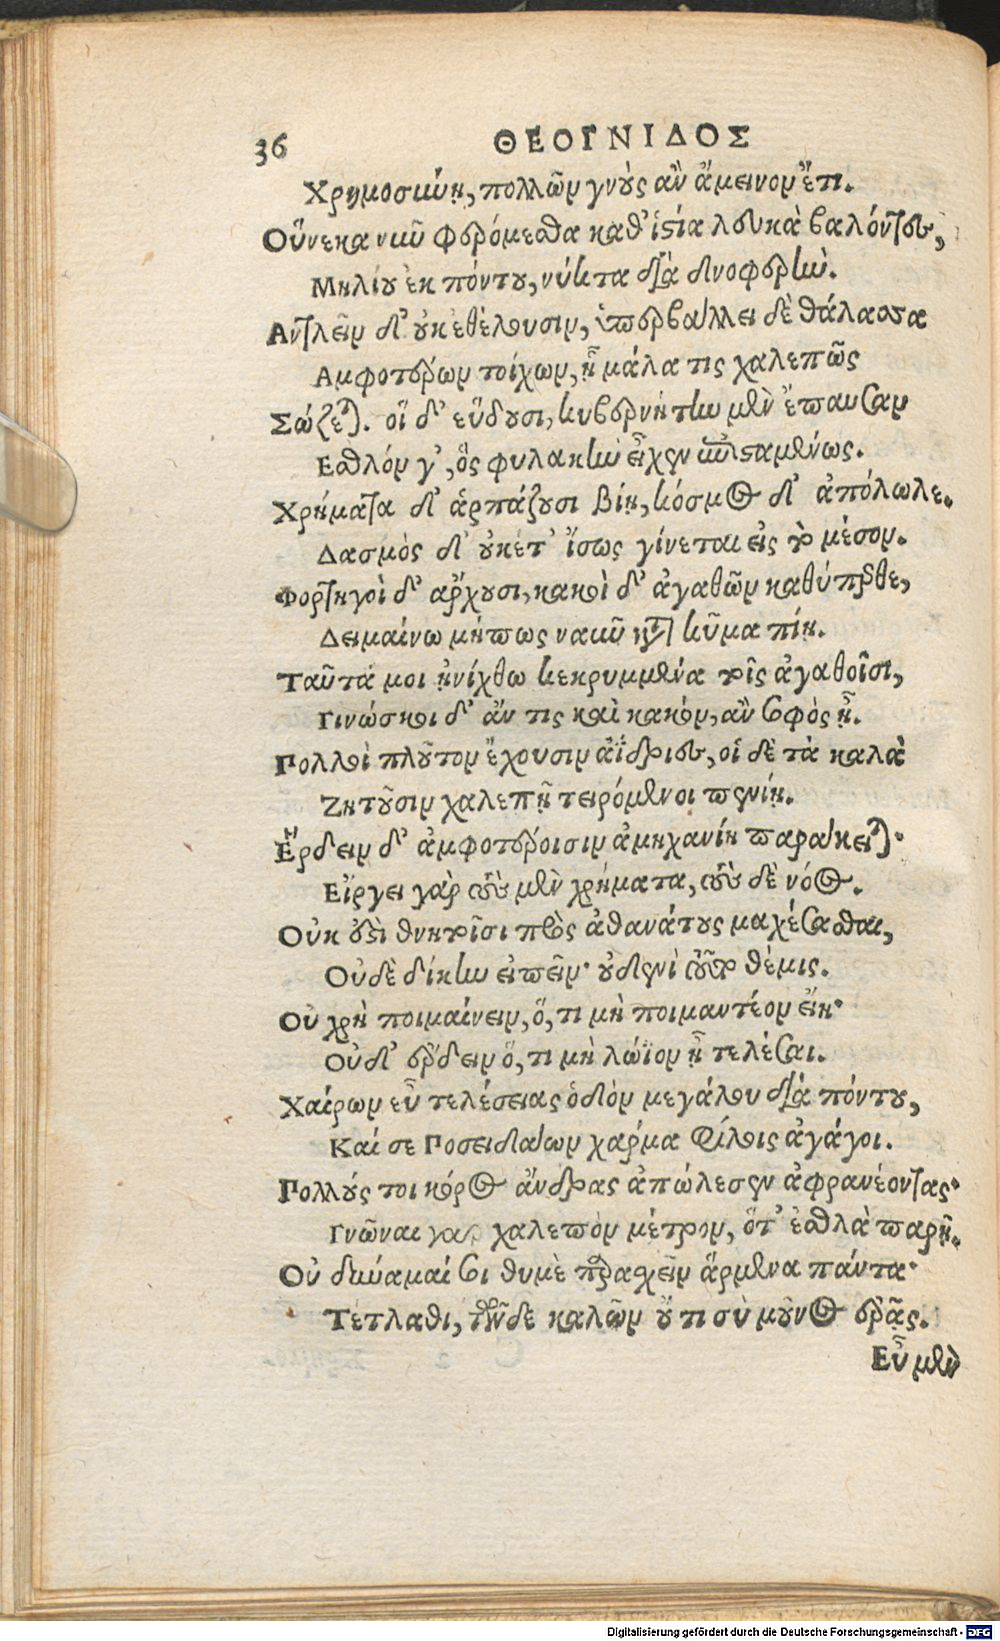 36 ΘΕΟΓΝΙΔΟΣ
Χρημοσύνῃ, πολλῶν γνοὺς ἂν ἄμεινον ἔτι.
Οὕνεκα νῦν φερόμεσθα καθ' ἱστία λευκὰ βαλόντες,
Μηλίου ἐκ πόντου, νύκτα διὰ δνοφερήν.
Αντλεῖν δ' οὐκ ἐθέλουσιν, ὑπερβάλλει δὲ θάλασσα
Αμφοτέρων τοίχων, ᾖ μάλα τις χαλεπῶς
Σώζεται. οἵ δ' εὕδουσι, κυβερνήτην μὲν ἔπαυσαν
Εσθλόν γ', ὃς φυλακὴν εἶχεν ἐπισταμένως.
Χρήματα δ' ἁρπάζουσι βίῃ, κόσμος δ' ἀπόλωλε.
Δασμὸς δ' οὐκέτ' ἴσως γίνεται εἰς τὸ μέσον.
Φορτηγοὶ δ' ἄρχουσι, κακοὶ δ' ἀγαθῶν καθύπερθε,
Δειμαίνω μήπως ναῦν κατὰ κῦμα πίῃ.
Ταῦτά μοι ᾐνίχθω κεκρυμμένα τοῖς ἀγαθοῖσι,
Γινώσκοι δ' ἄν τις καὶ κακόν, ἂν σοφὸς ᾖ.
Πολλοὶ πλοῦτον ἔχουσιν ἀΐδριες, οἱ δὲ τὰ καλὰ
Ζητοῦσιν χαλεπῇ τειρόμενοι πενίῃ.
Ἔρδειν δ' ἀμφοτέροισιν ἀμηχανίη παράκειται·
Εἴργει γὰρ τοὺς μὲν χρήματα, τοὺς δὲ νόος.
Οὐκ ἔστι θνητοῖσι πρὸς ἀθανάτους μαχέσασθαι,
Οὐδὲ δίκην εἰπεῖν· οὐδενὶ τοῦτο θέμις.
Οὐ χρὴ ποιμαίνειν, ὅ, τι μὴ ποιμαντέον εἴη·
Οὐδ' ἔρδειν ὅ, τι μὴ λώϊον ᾖ τελέσαι.
Χαίρων εὖ τελέσειας ὁδὸν μεγάλου διὰ πόντου,
Καί σε Ποσειδάων χάρμα φίλοις ἀγάγοι.
Πολλούς τοι κόρος ἄνδρας ἀπώλεσεν ἀφρανέοντας·
Γνῶναι γαρ χαλεπὸν μέτρον, ὅτ' ἐσθλὰ παρῇ.
Οὐ δύναμαί σοι θυμὲ παρασχεῖν ἄρμενα πάντα·
Τέτλαθι, τῶνδε καλῶν οὔτι σὺ μοῦνος ἐρᾷς.
Εὖ μὲν
Digitalisierung gefördert durch die Deutsche Forschungsgemeinschaft - DFG